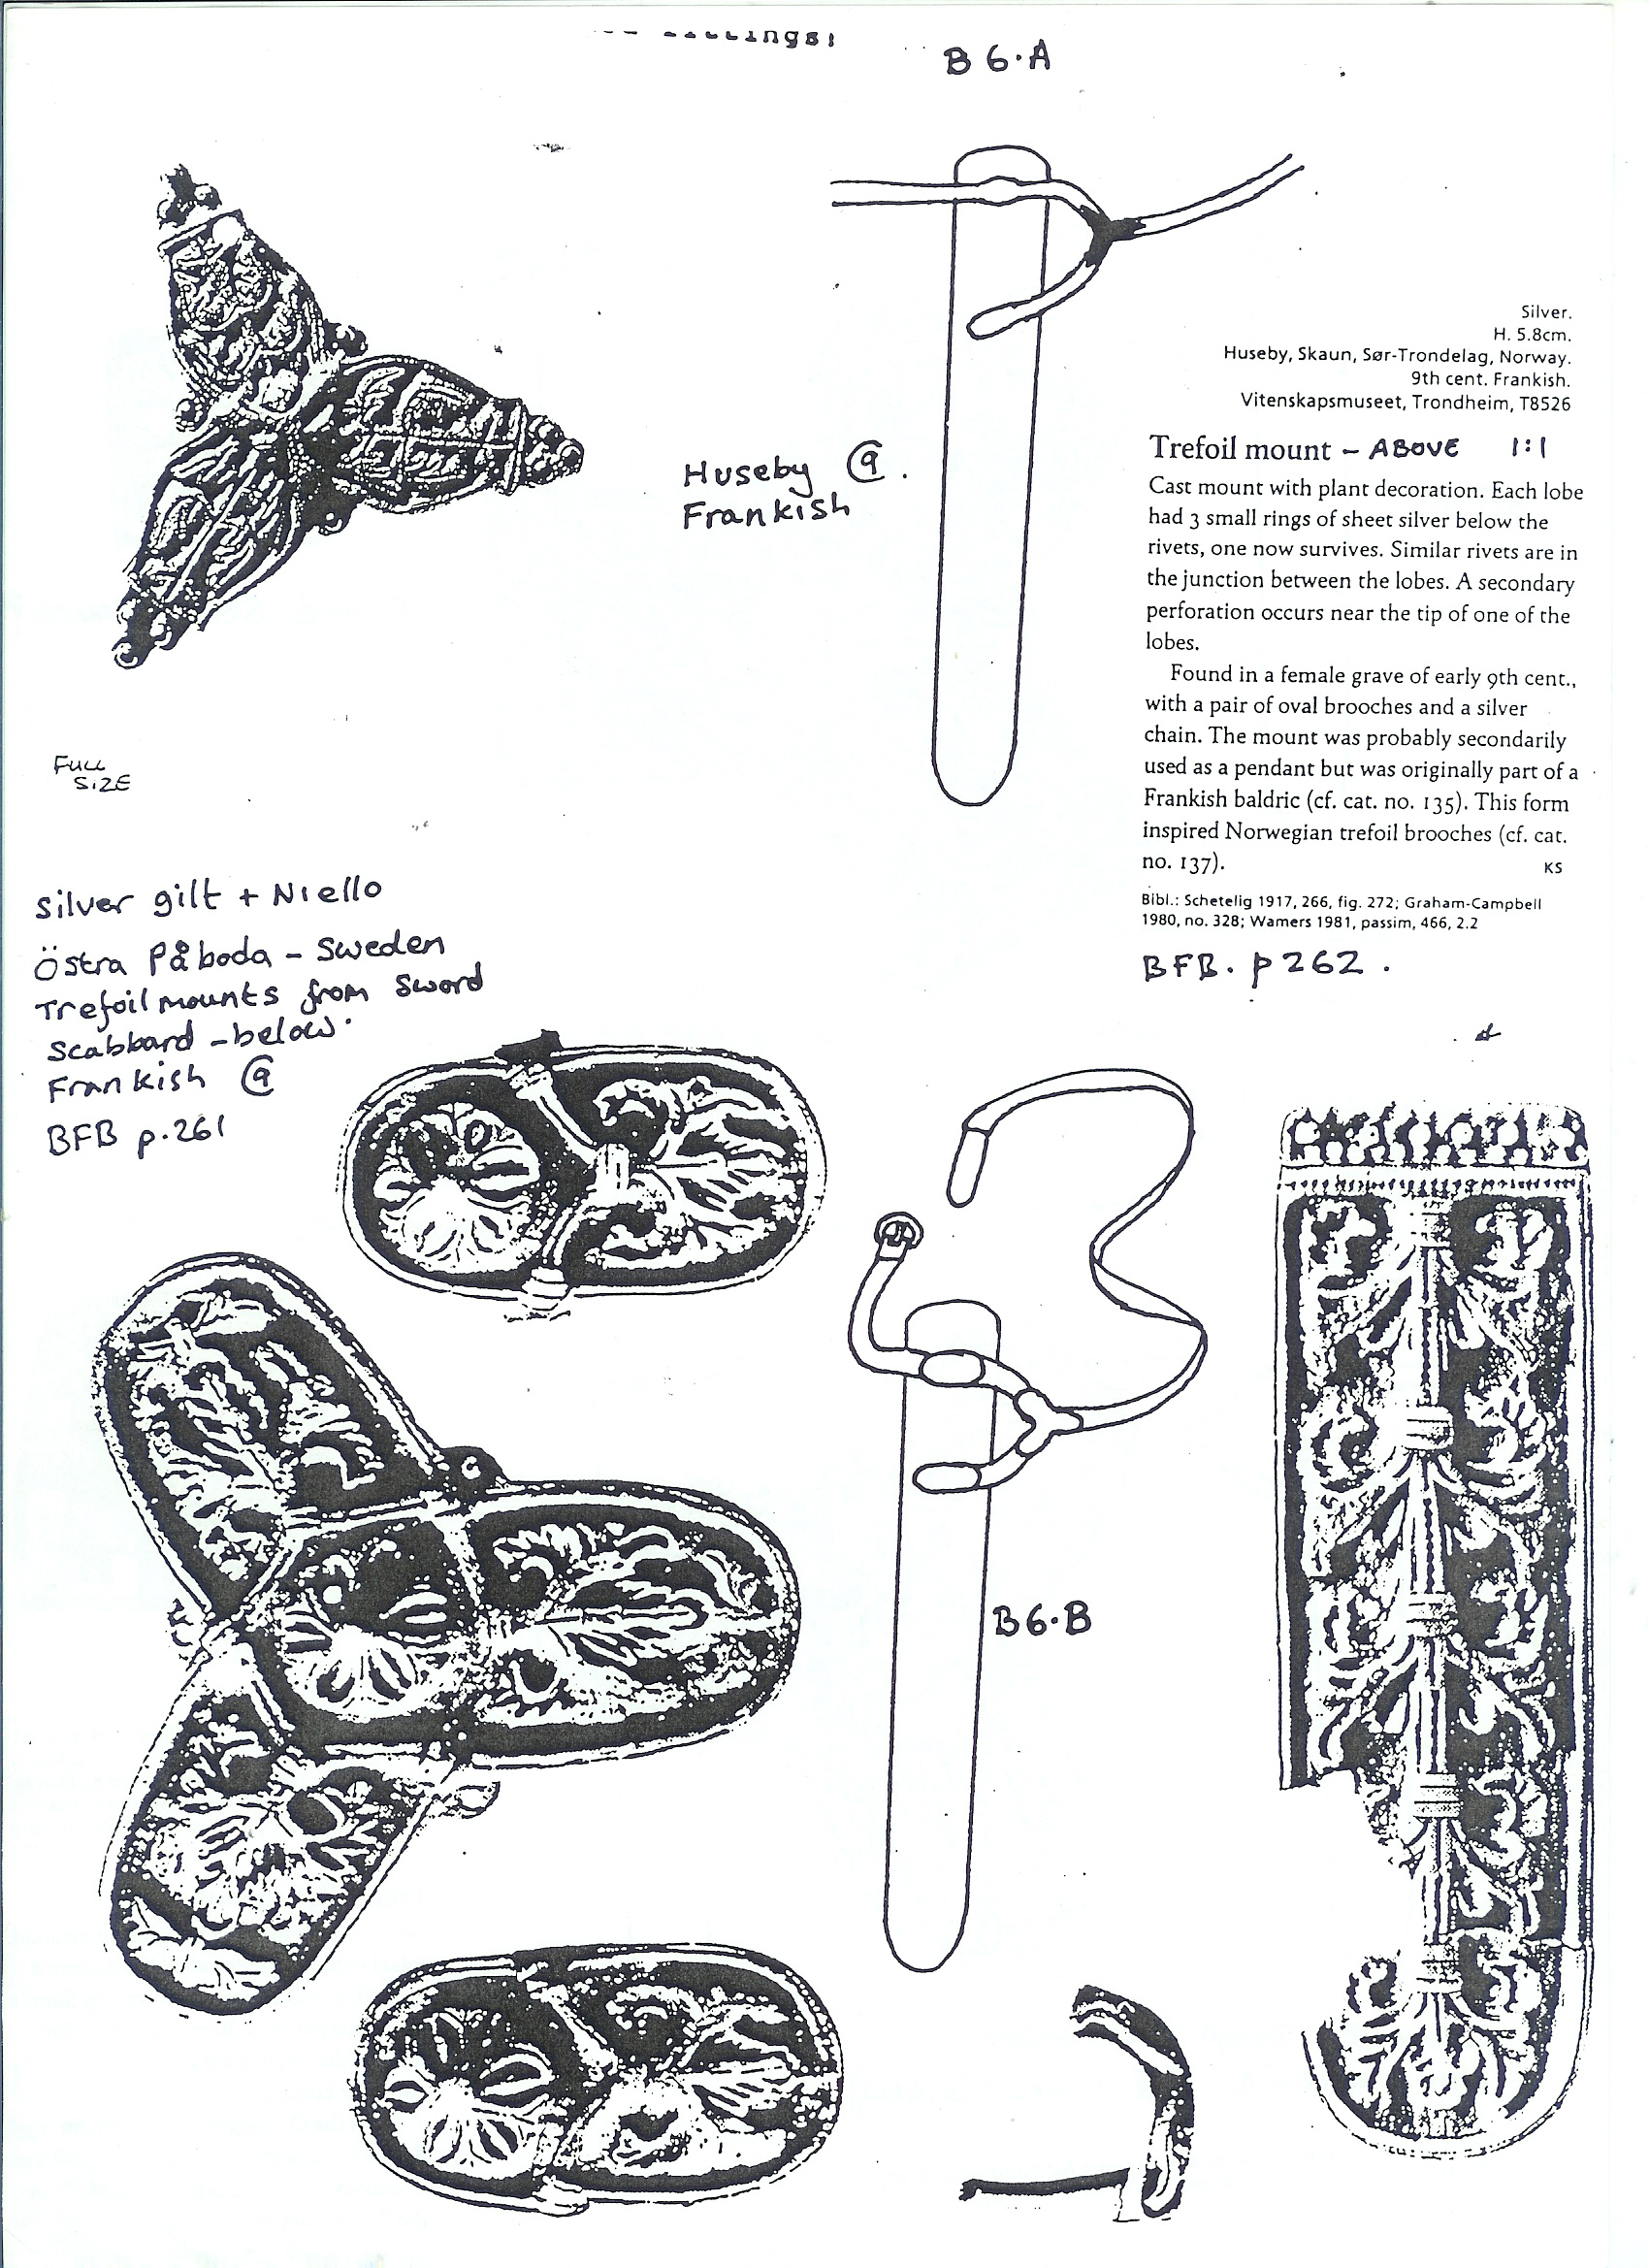 fittings:
B 6.A
Silver.
H. 5.8cm.
Huseby, Skaun, Sør-Trondelag, Norway.
9th cent. Frankish.
Vitenskapsmuseet, Trondheim, T8526
Trefoil mount – ABOVE 1:1
Cast mount with plant decoration. Each lobe
had 3 small rings of sheet silver below the
rivets, one now survives. Similar rivets are in
the junction between the lobes. A secondary
perforation occurs near the tip of one of the
lobes.
Found in a female grave of early 9th cent.,
with a pair of oval brooches and a silver
chain. The mount was probably secondarily
used as a pendant but was originally part of a
Frankish baldric (cf. cat. no. 135). This form
inspired Norwegian trefoil brooches (cf. cat.
no. 137).
KS
Bibl.: Schetelig 1917, 266, fig. 272; Graham-Campbell
1980, no. 328; Wamers 1981, passim, 466, 2.2
BFB. p 262.
Huseby 9.
Frankish
FULL
SIZE
Silver gilt + Niello
Östra Påboda – Sweden
Trefoil mounts from Sword
Scabbard – below.
Frankish 9
BFB p.261
B6.B